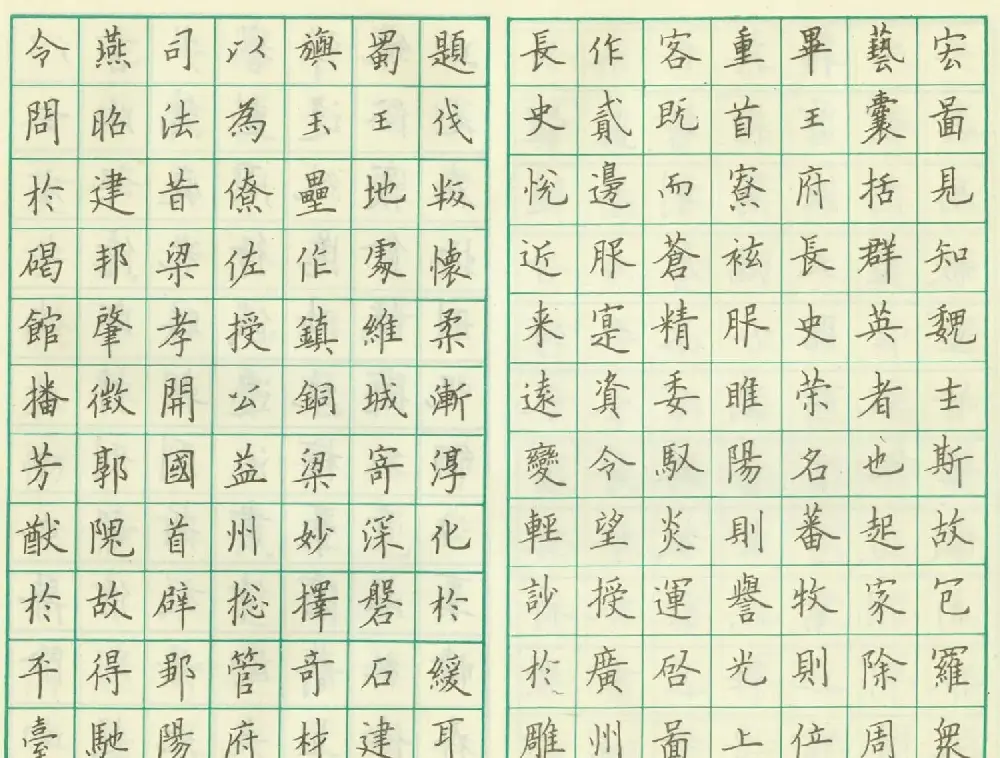 宏啚見知魏士斯故包羅衆
藝囊括群英者也起家除周
畢王府長史荣名蕃牧則位
重首寮袨服睢陽則譽光上
客既而蒼精委馭炎運启啚
作貳邊服寔資令望授廣州
長史悅近来遠變輕訬於雕
題伐叛懷柔漸淳化於緩耳
蜀王地處維城寄深磐石建
旟玉壘作鎮銅梁妙擇奇材
以為僚佐授公益州摠管府
司法昔梁孝開國首辟鄒陽
燕昭建邦肇徵郭隗故得馳
令問於碣館播芳猷於平臺